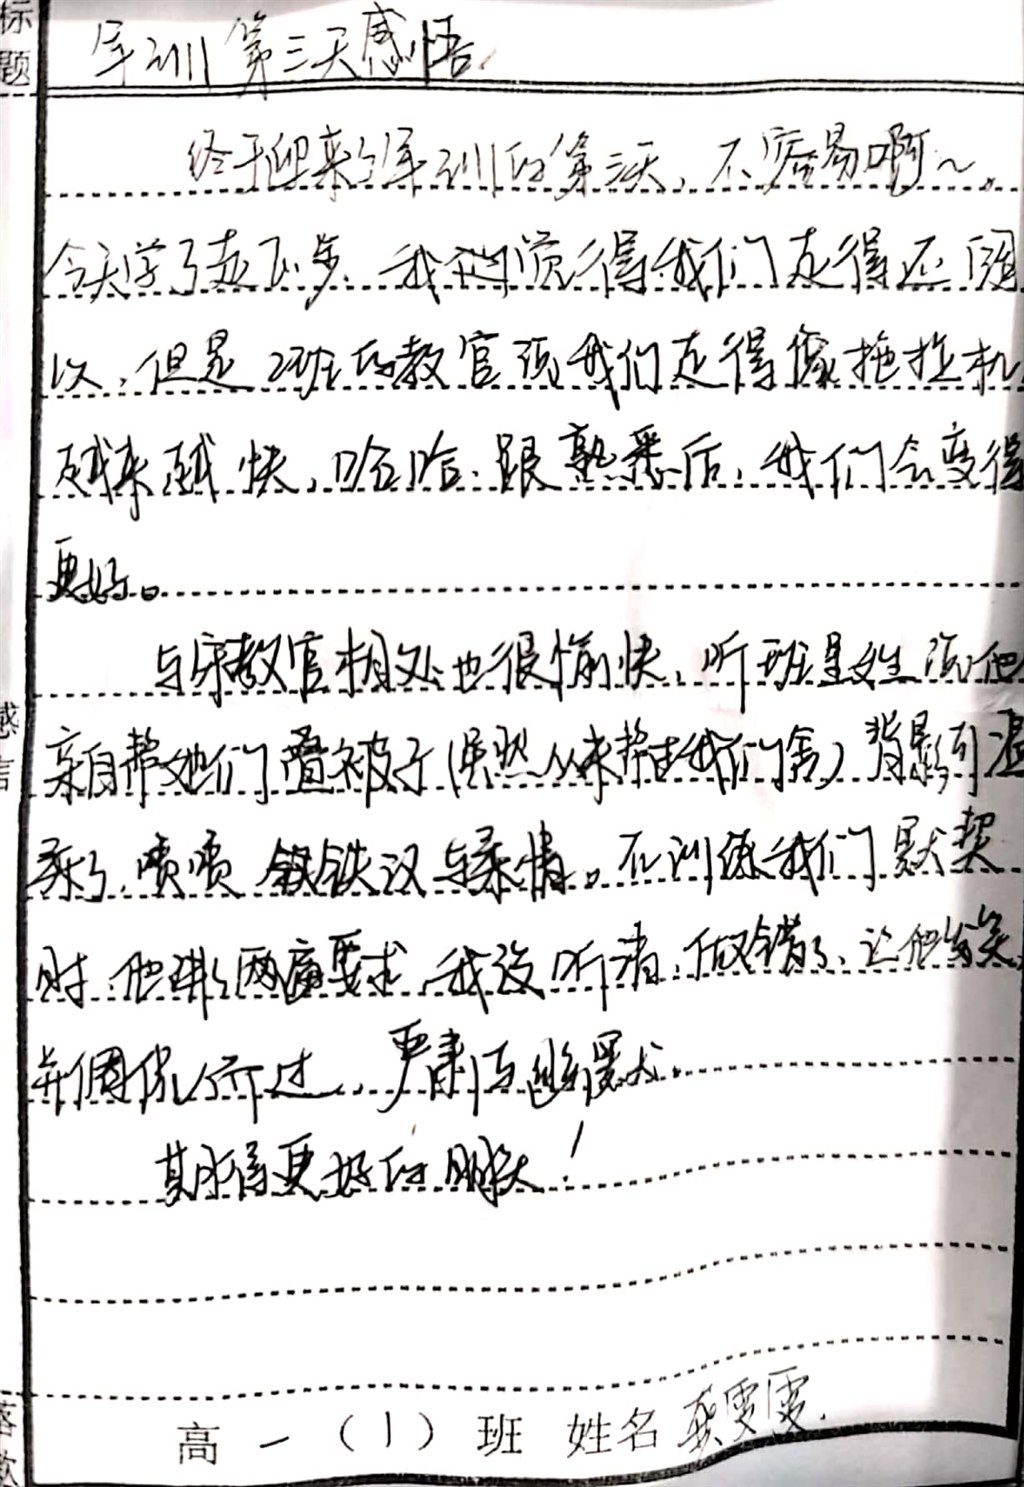 标题
军训第三天感悟.
终于迎来了军训的第三天，不容易啊～。
今天学了走正步，我们觉得我们走得还可
以，但是2班的教官说我们走得像拖拉机
越来越快，哈哈，跟熟悉后，我们会变得
更好。
与宋教官相处也很愉快，听班里女生说他
感言
亲自帮她们叠被子（虽然从来搭我们舍）背影引温
柔了，啧啧 铁汉与柔情。在训练我们默契
时，他讲了两遍要求，我没听清，做错了，让他发笑
并偶俬一而过，严肃与幽默.
期待更好的明天！
落款
高一（1）班 姓名 龚雯雯.